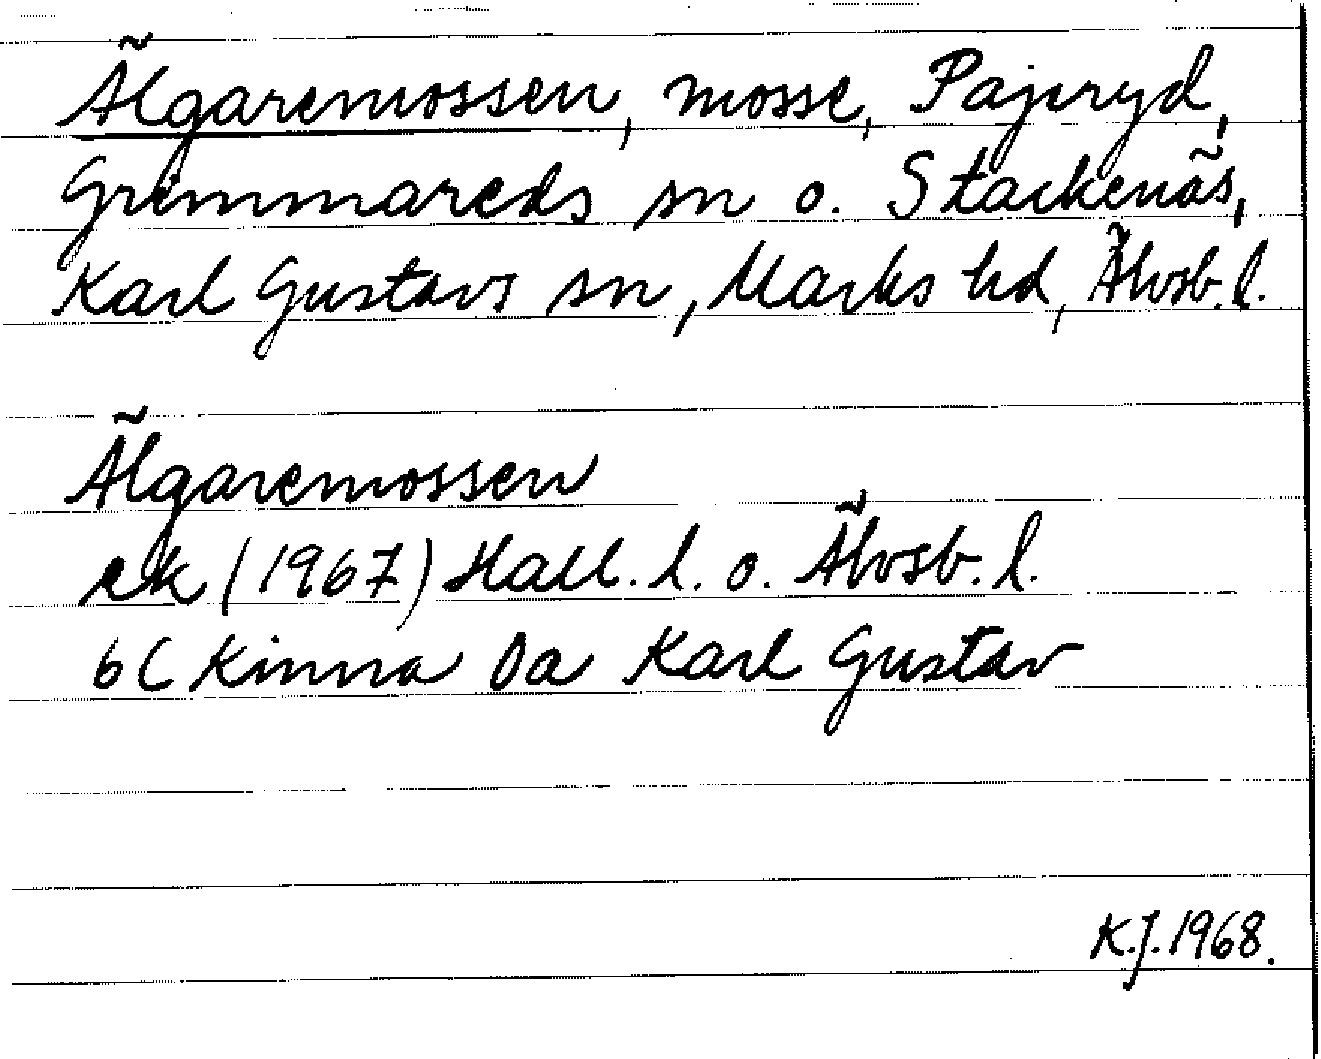 Älgaremossen, mosse, Pajeryd,
Grimmareds sn o. Stackenäs,
Karl Gustavs sn, Marks hd, Älvsb. l.
Älgaremossen
ek (1967) Hall. l. o. Älvsb. l.
6C Kinna 0a Karl Gustav
K.J. 1968.